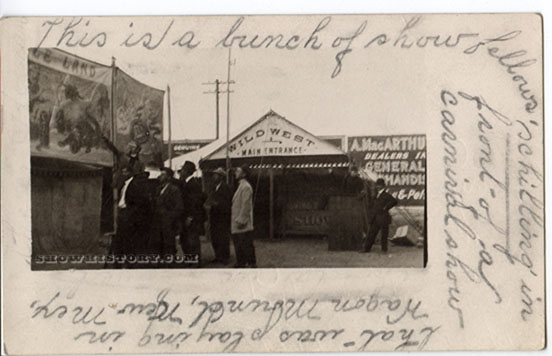 This is a bunch of show
fellows, 'shilling' in
front of a
carnival show
that was playing in
Wagon Mound, New Mex.
LAND
WILD WEST
MAIN ENTRANCE
A. MACARTHU
DEALERS IN
GENERAL
HANDIS
SHOWHISTORY.COM